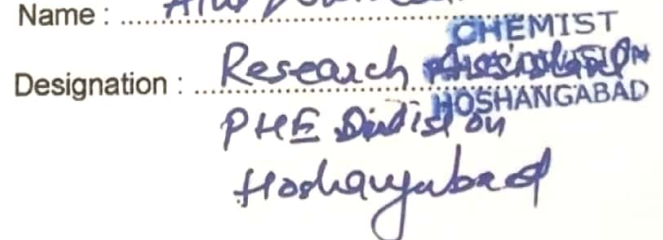 Name :
CHEMIST
Designation : Research Assistant
HOSHANGABAD
PHE Division
Hoshangabad